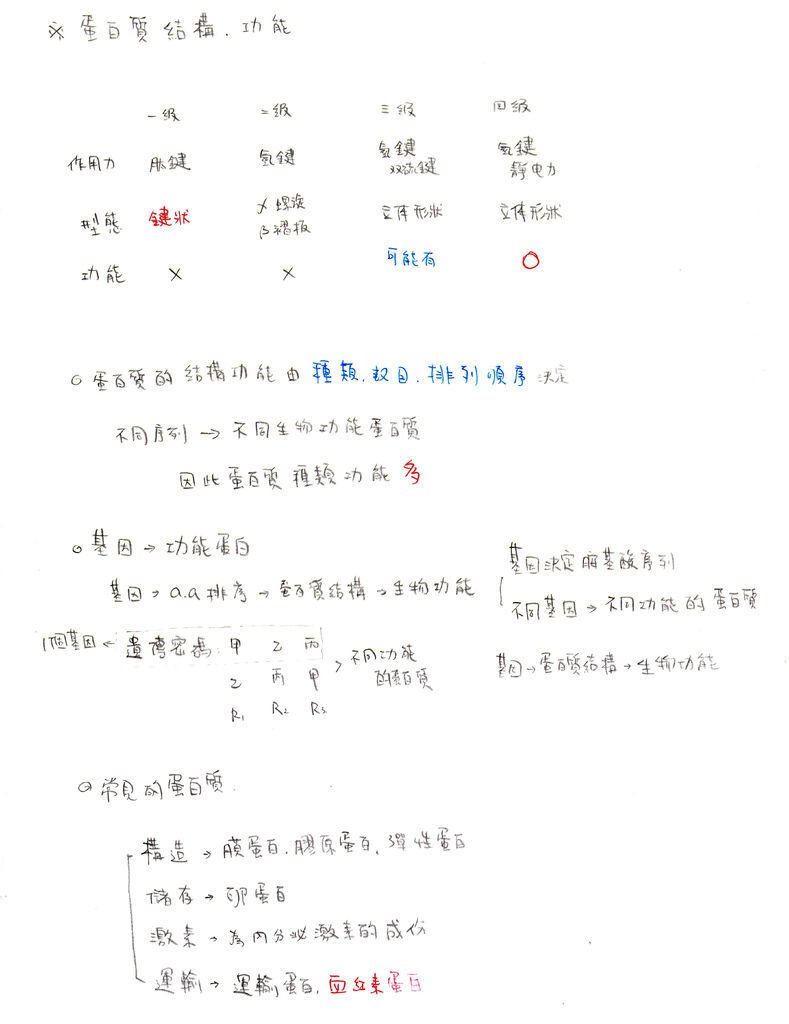 ※ 蛋白質結構.功能
一级 二级 三级 四级
作用力 肽鍵 氫鍵 氫鍵 双硫鍵 氫鍵 静电力
型態 鍵狀 α螺旋 β褶板 立体形狀 立体形狀
功能 × × 可能有 ○
○ 蛋白質的結構功能由種類.数目.排列順序決定
不同序列 → 不同生物功能蛋白質
因此蛋白質種類功能多
○ 基因 → 功能蛋白
基因 → a.a 排序 → 蛋白質結構 → 生物功能
基因決定胺基酸序列
不同基因 → 不同功能的蛋白質
基因 → 蛋白質結構 → 生物功能
1個基因 ← 遺傳密碼: 甲 乙 丙
乙 丙 甲
R₁ R₂ R₃
> 不同功能
的蛋白質
○ 常見的蛋白質
構造 → 膜蛋白.膠原蛋白.彈性蛋白
儲存 → 卵蛋白
激素 → 為內分泌激素的成份
運輸 → 運輸蛋白.血红素蛋白